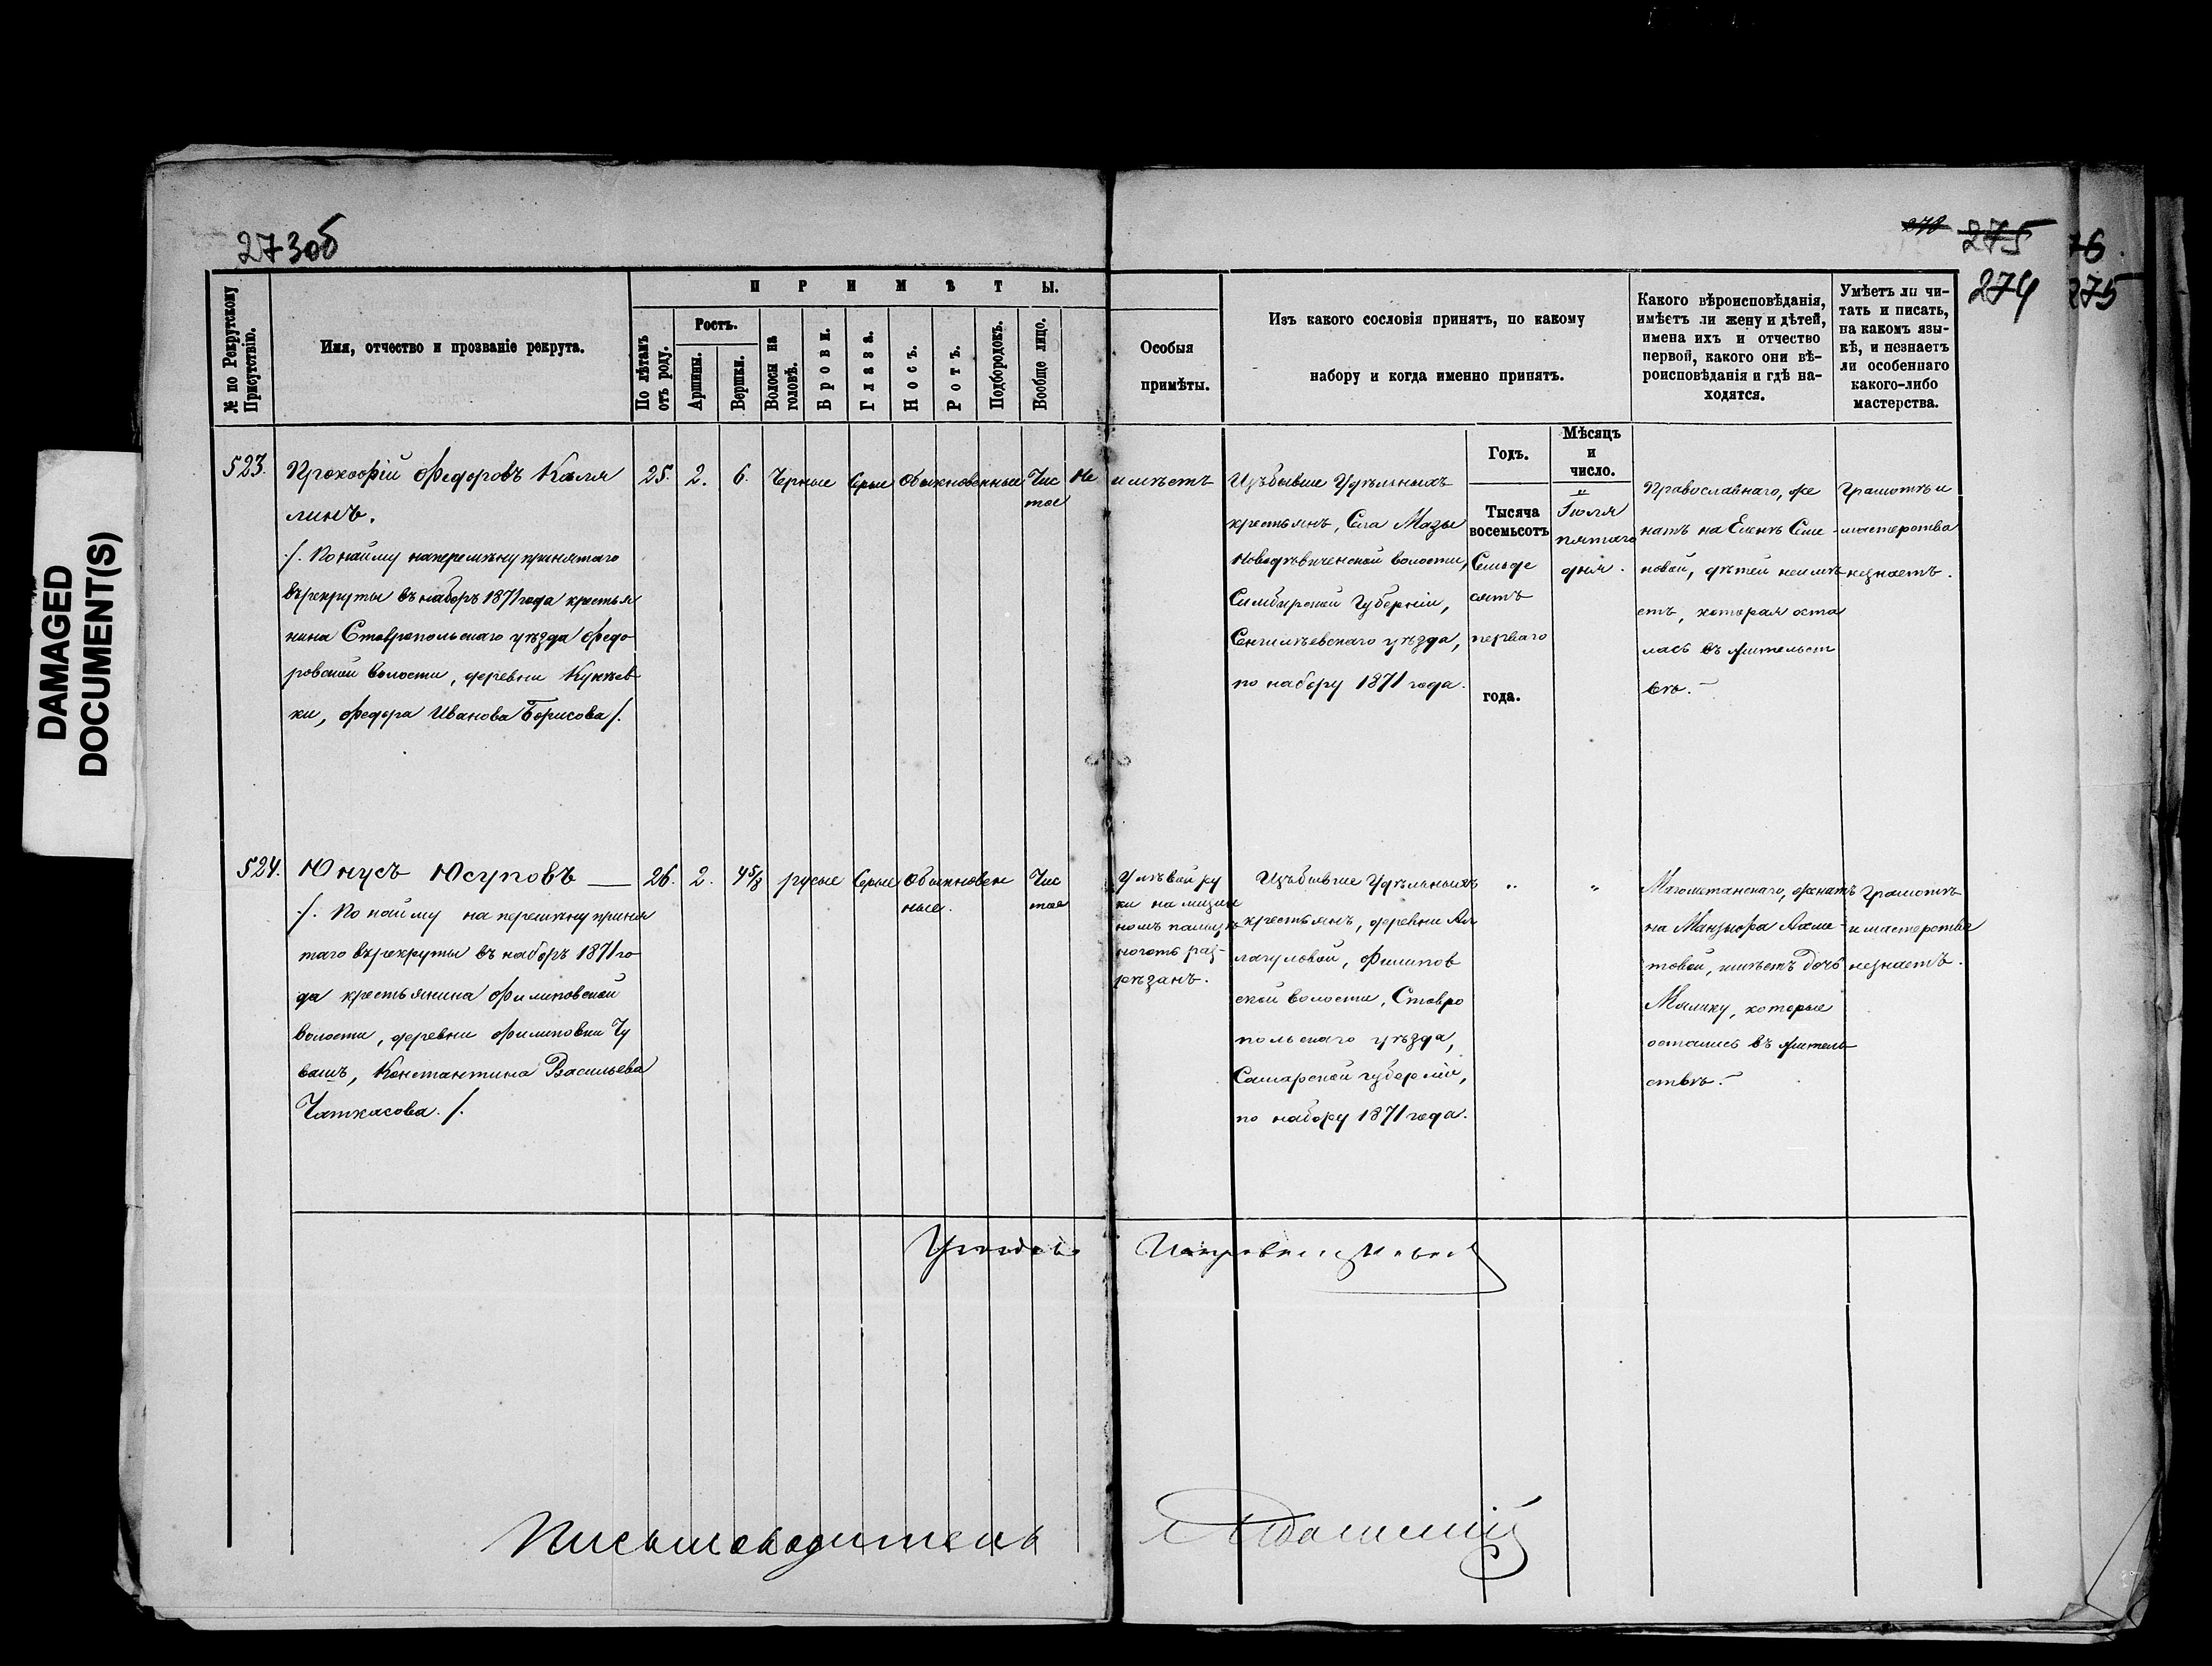 DAMAGED
DOCUMENT(S)
273об
275
274
76.
275
№ по Рекрутскому
Присутствію.
Имя, отчество и прозваніе рекрута.
ПРИМѢТЫ.
По лѣтамъ
отъ роду.
Ростъ.
Аршины.
Вершки.
Волосы на
головѣ.
Брови.
Глаза.
Носъ.
Ротъ.
Подбородокъ.
Вообще лицо.
Особыя
примѣты.
Изъ какого сословія принятъ, по какому
набору и когда именно принятъ.
Какого вѣроисповѣданія,
имѣетъ ли жену и дѣтей,
имена ихъ и отчество
первой, какого они вѣ-
роисповѣданія и гдѣ на-
ходятся.
Умѣетъ ли чи-
тать и писать,
на какомъ язы-
кѣ, и незнаетъ
ли особеннаго
какого-либо
мастерства.
Годъ.
Мѣсяцъ
и
число.
523.
Прокофій Федоровъ Каля
линъ.
/. По найму наперемѣну принятаго
върекруты въ наборъ 1871 года крестья
нина Ставропольскаго уѣзда Федо
ровской волости, деревни Кунѣев
ки, Федора Иванова Борисова /.
25. 2. 6. Черные Серые Обыкновенные Чис
тое
Не имѣетъ
Изъ бывше Удѣльныхъ
крестьянъ, Села Мазы
Новодѣвиченской волости,
Симбирской Губерніи,
Сенгилѣевскаго уѣзда,
по набору 1871 года.
Тысяча
восемьсотъ
Семьде
сятъ
перваго
года.
Іюля
пятаго
дня.
Православнаго, же
натъ на Еленѣ Семе
новой, дѣтей неимѣ
етъ, которая оста
лась въ жительст
вѣ.
Грамотѣ и
мастерства
незнаетъ.
524.
Юнусъ Юсуповъ —
/. По найму на перемѣну приня
таго върекруты въ наборъ 1871 го
да крестьянина Филиповской
волости, деревни Филиповки Чу
вашъ, Константина Васильева
Чаткасова. /.
26. 2. 4 5/8 русые Серые Обыкновен
ные.
Чис
тое
У лѣвой ру
ки на мизин
номъ пальцѣ
ноготь раз-
рѣзанъ.
Изъ бывше Удѣльныхъ
крестьянъ, деревни Ал
лагуловой, Филипов
ской волости, Ставро
польскаго уѣзда,
Самарской губерніи,
по набору 1871 года.
" "
Магометанскаго, женатъ
на Манзюфа Ахме
товой, имѣетъ дочь
Малику, которые
остались въ житель
ствѣ.
Грамотѣ
и мастерства
незнаетъ.
Письмоводитель